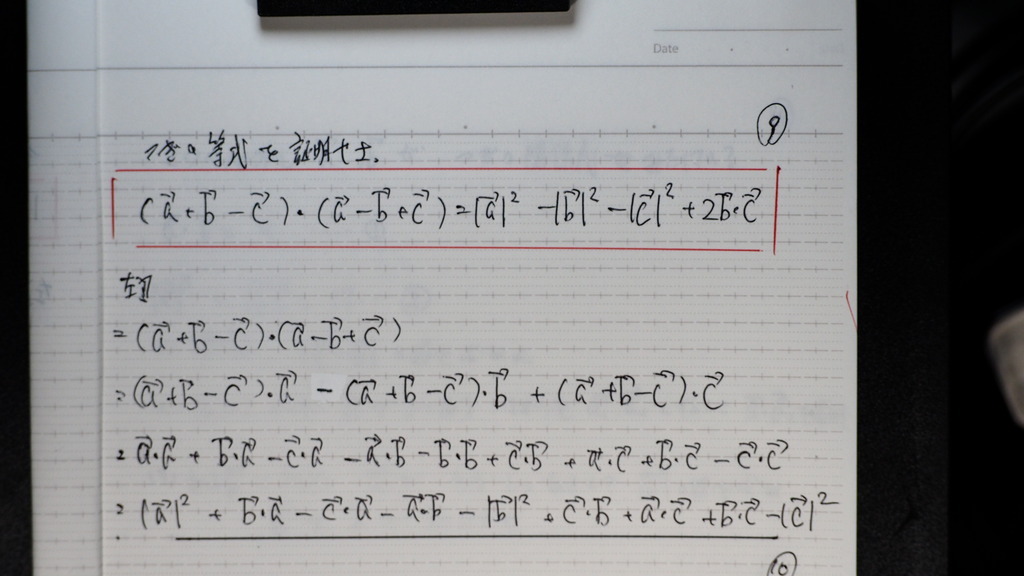 Date
⑨
つぎの等式を証明せよ.
(a⃗+b⃗-c⃗)・(a⃗-b⃗+c⃗)=|a⃗|²-|b⃗|²-|c⃗|²+2b⃗・c⃗
左辺
=(a⃗+b⃗-c⃗)・(a⃗-b⃗+c⃗)
=(a⃗+b⃗-c⃗)・a⃗-(a⃗+b⃗-c⃗)・b⃗+(a⃗+b⃗-c⃗)・c⃗
=a⃗・a⃗+b⃗・a⃗-c⃗・a⃗-a⃗・b⃗-b⃗・b⃗+c⃗・b⃗+a⃗・c⃗+b⃗・c⃗-c⃗・c⃗
=|a⃗|²+b⃗・a⃗-c⃗・a⃗-a⃗・b⃗-|b⃗|²+c⃗・b⃗+a⃗・c⃗+b⃗・c⃗-|c⃗|²
⑩